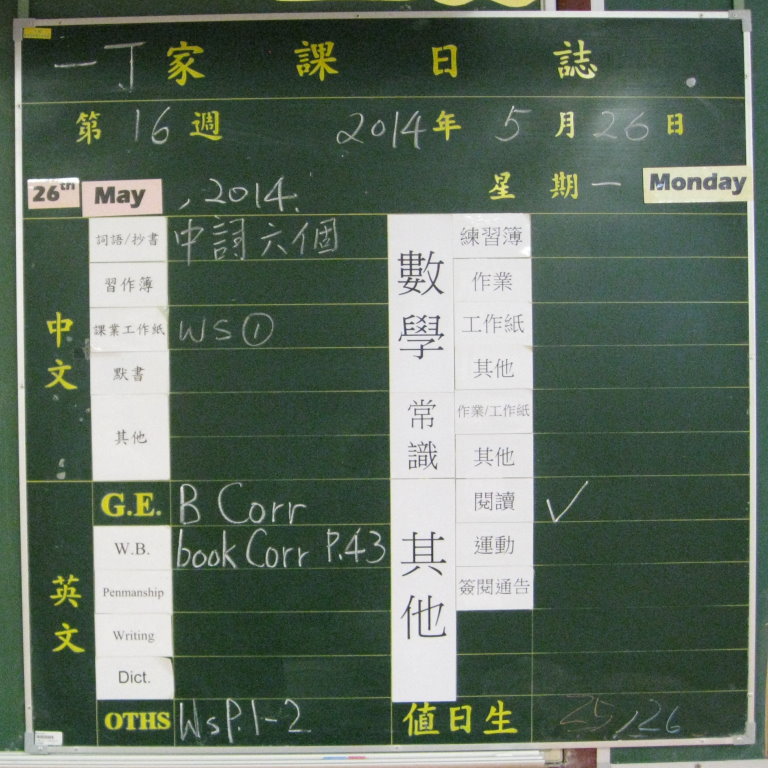 一丁家課日誌
第16週 2014年5月26日
26th May , 2014. 星期一 Monday
中文
詞語/抄書 中詞六個
習作簿
課業工作紙 WS①
默書
其他
英文
G.E. B Corr
W.B. book Corr P.43
Penmanship
Writing
Dict.
OTHS Ws P.1-2
數學
練習簿
作業
工作紙
其他
常識
作業/工作紙
其他
其他
閱讀 ✓
運動
簽閱通告
值日生 25,26